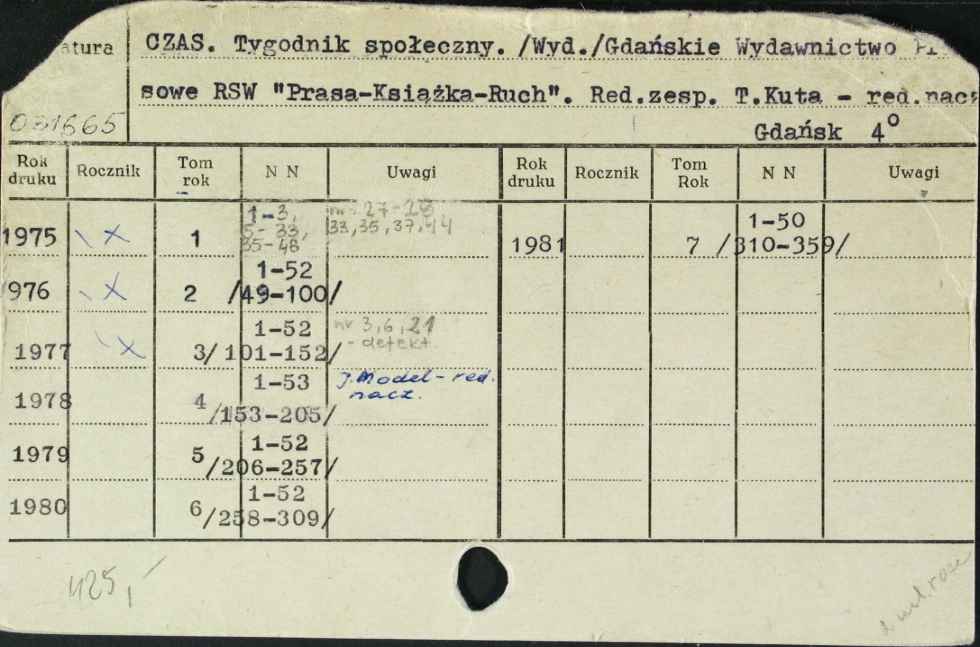 atura
CZAS. Tygodnik społeczny. /Wyd./Gdańskie Wydawnictwo
sowe RSW "Prasa-Książka-Ruch". Red.zesp. T.Kuta - red.nacz
031665
Gdańsk 4°
Rok druku Rocznik Tom rok N N Uwagi Rok druku Rocznik Tom Rok N N Uwagi
1975 x 1 1-3, 5-33, 35-48 nr 27-28 33,35,37,44 1981 7 1-50 /310-359/
976 x 2 1-52 /49-100/
1977 x 3 1-52 /101-152/ nr 3,6,21 - defekt.
1978 4 1-53 /153-205/ J.Model - red. nacz.
1979 5 1-52 /206-257/
1980 6 1-52 /258-309/
425,-